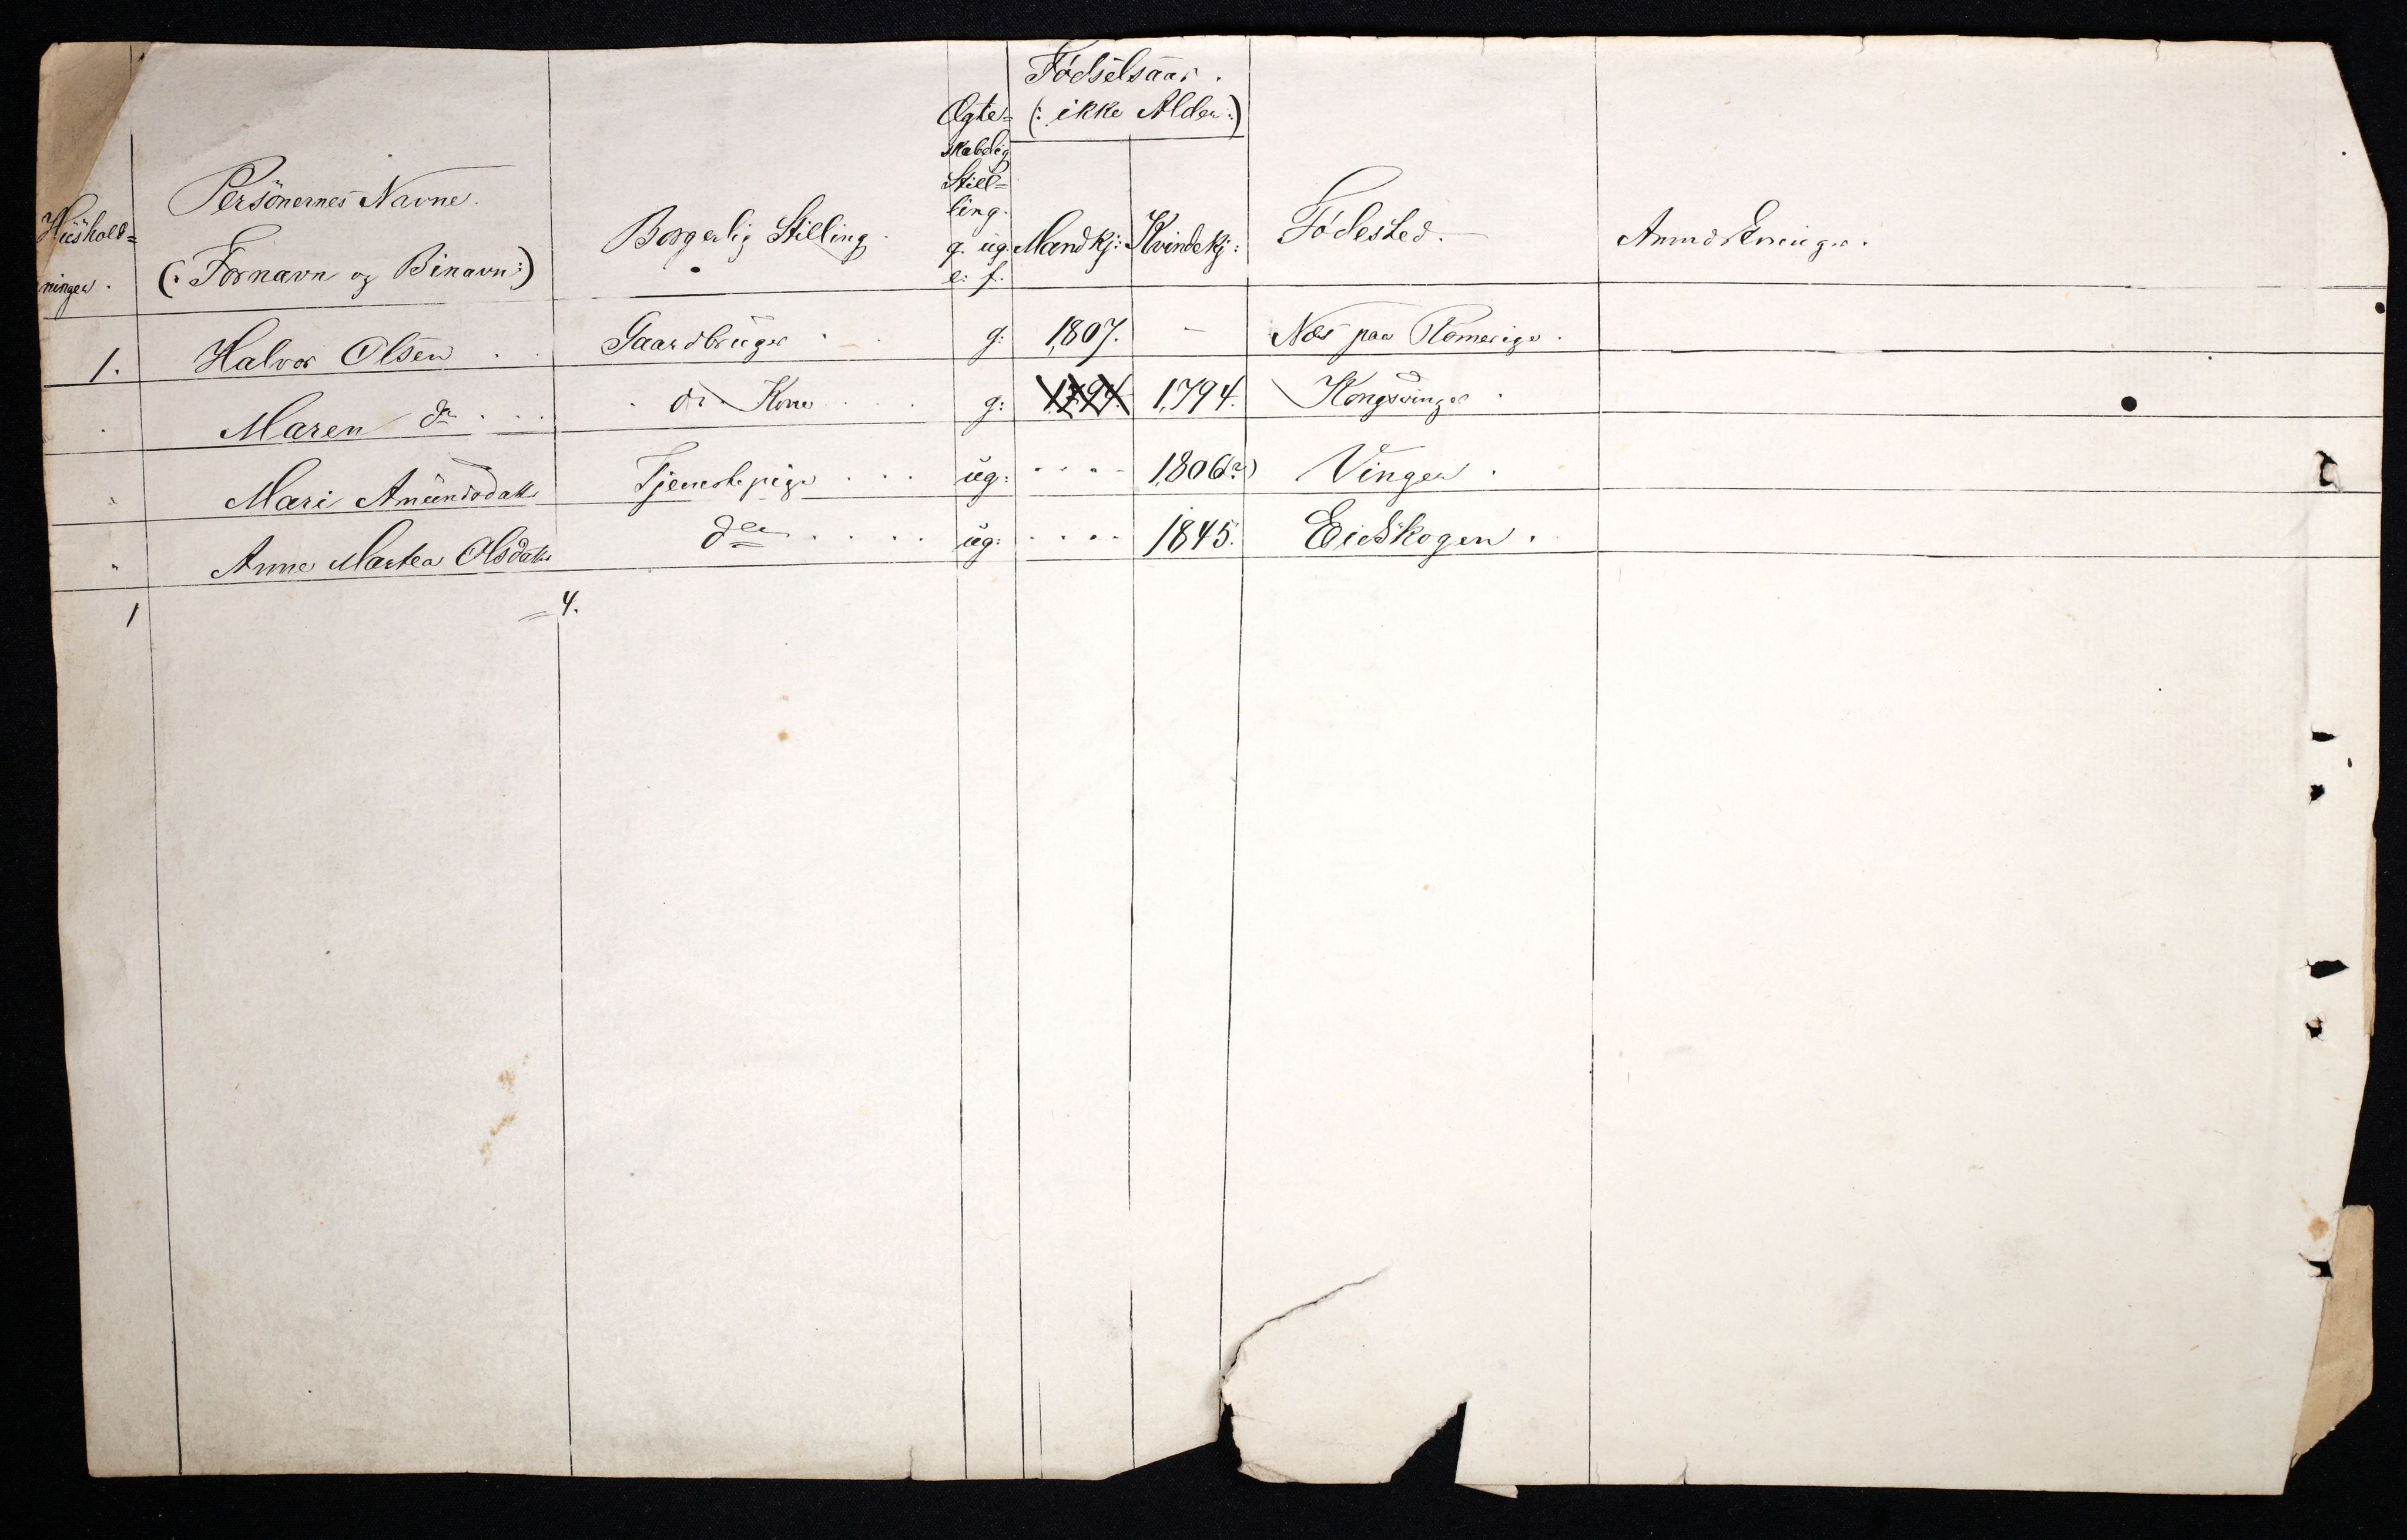 Huushold=
ningen.
Personernes Navne.
(: Fornavn og Binavn :)
Borgerlig Stilling
Ægte=
skabelig
Still=
ling.
g. ug.
e: f.
Fødselsaar.
(: ikke Alder :)
Mandkj: Kvindekj:
Fødested.
Anmærkninger.
1. Halvor Olsen Gaardbruger g: 1807. - Næs paa Romerige.
Maren do do Kone g: 1794. 1794. Kongsvinger
" Mari Amundsdatter Tjenestepige ug: 1806(?) Vinger.
" Anne Martea Olsdatter do ug: 1845. Eidskogen.
1 = 4.